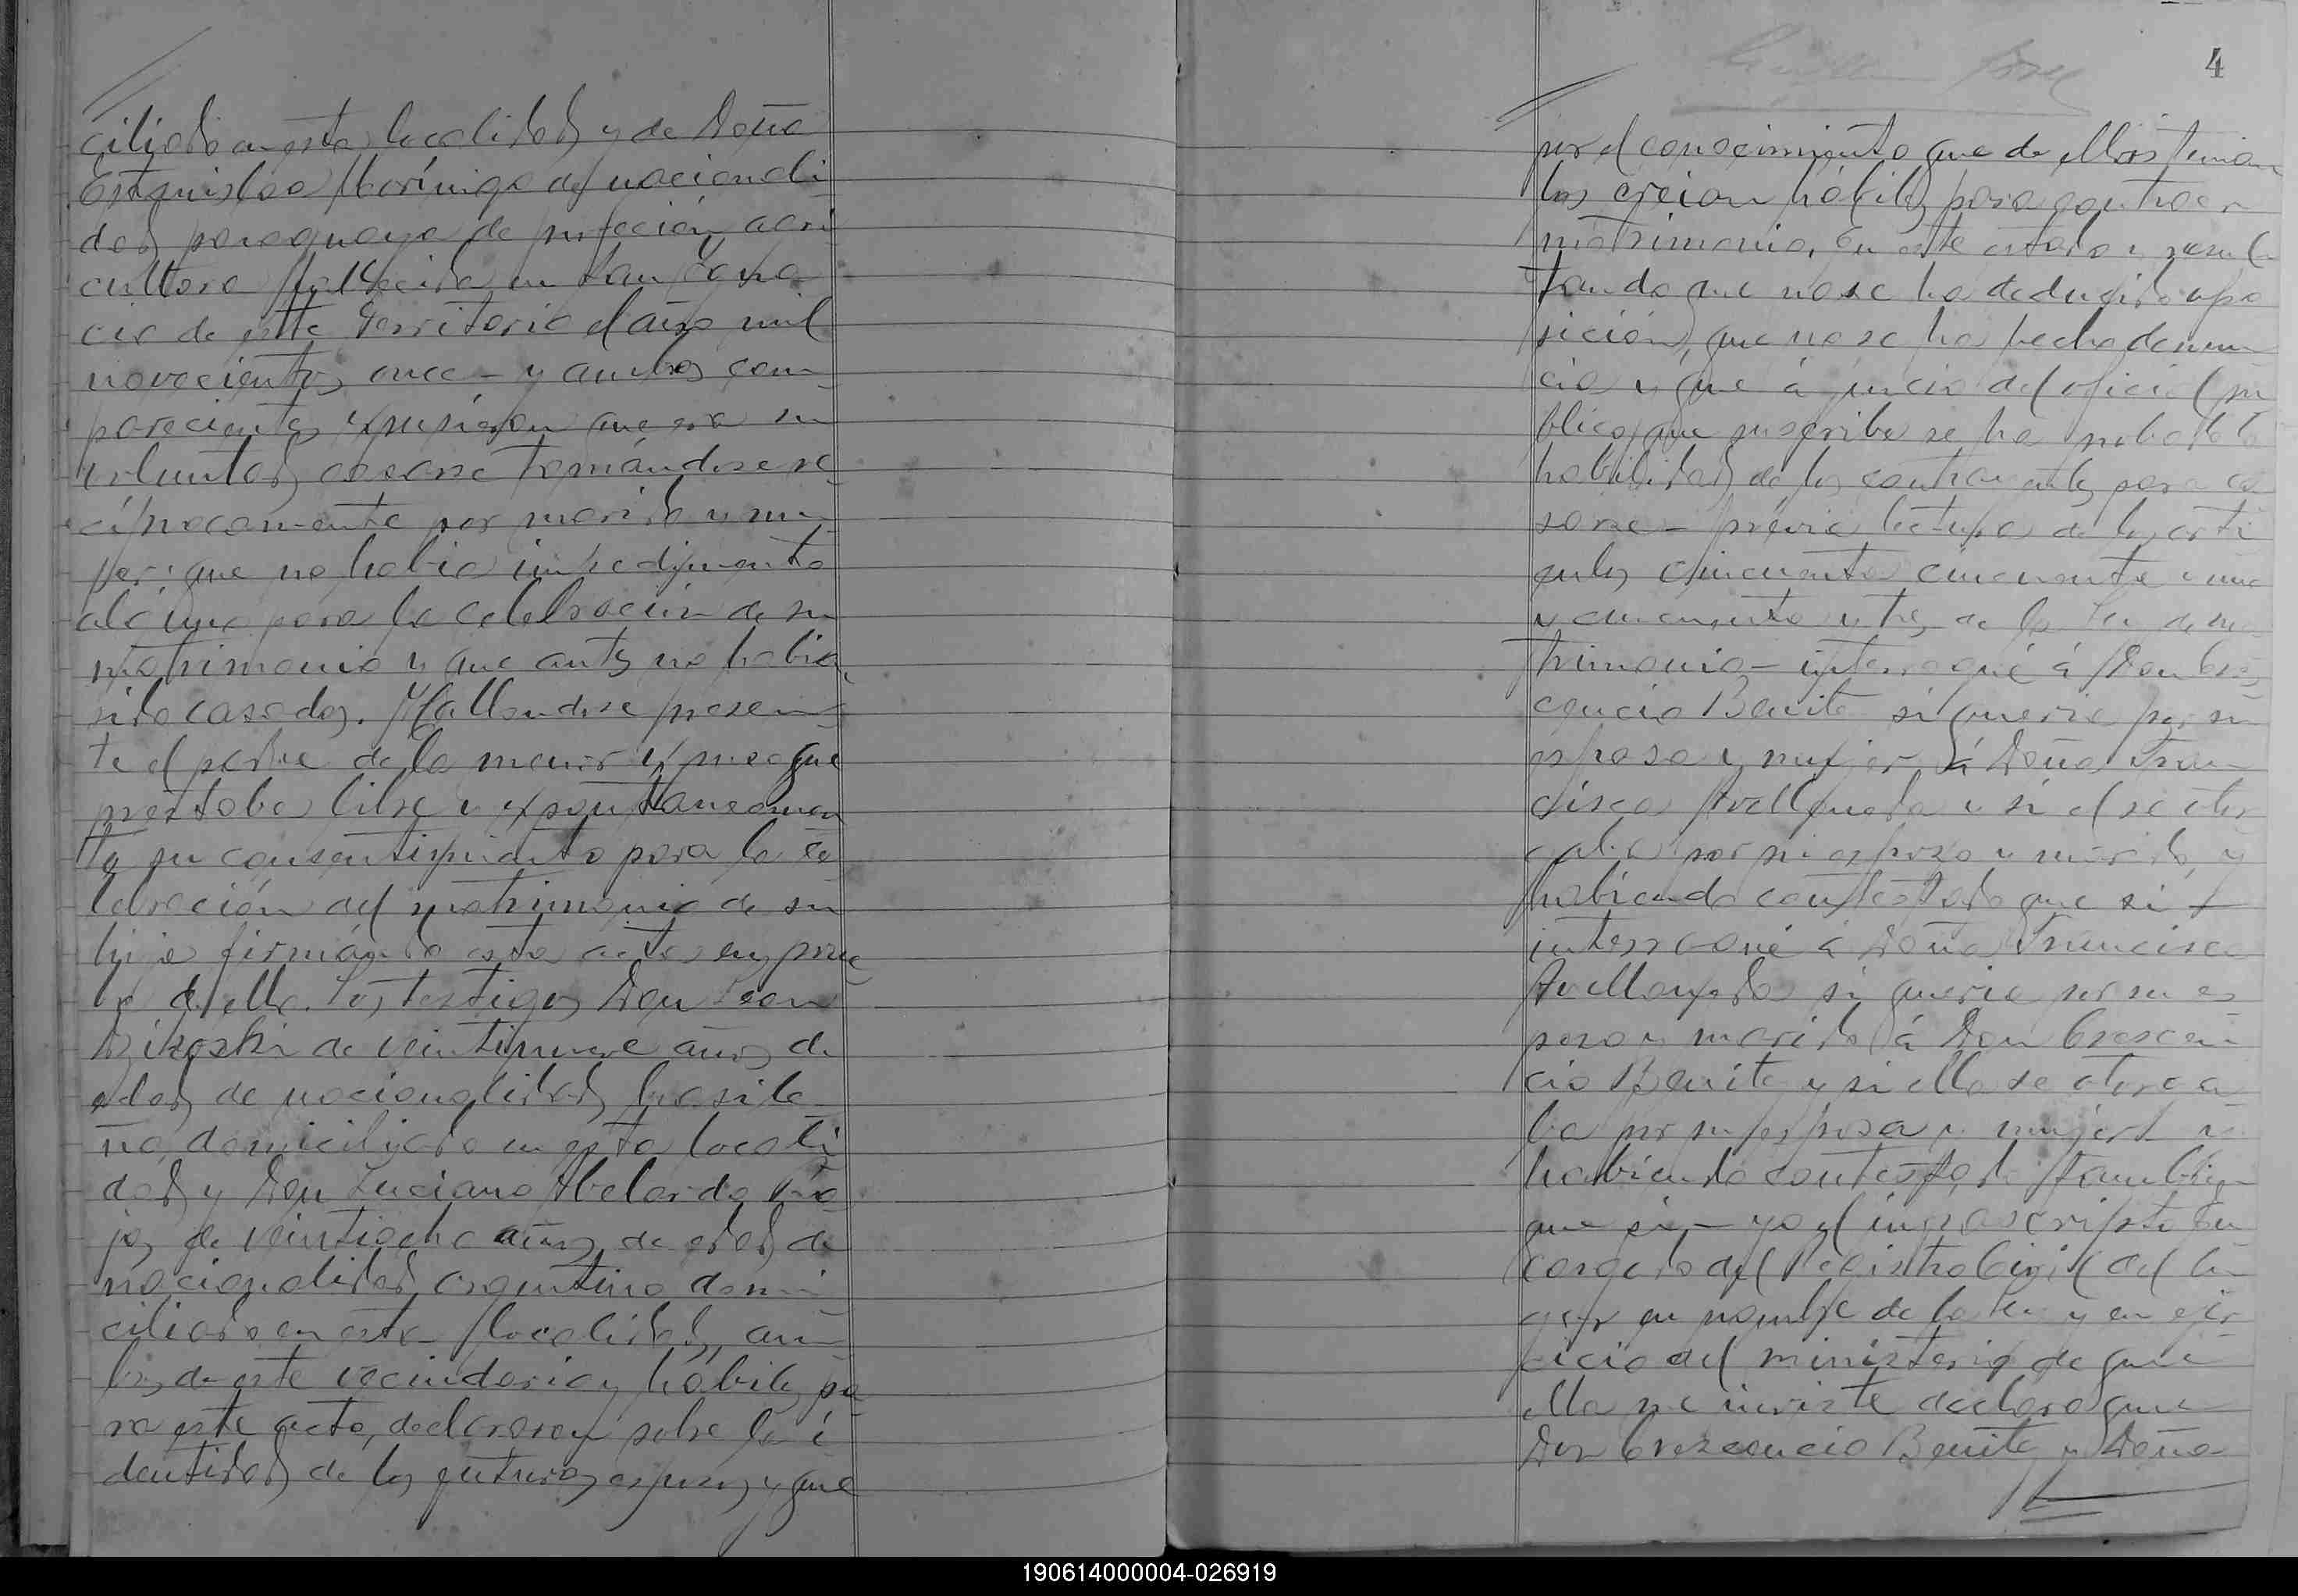 ciliado en esta localidad y de Doña
Estanislaa Morínigo de nacionali
dad paraguaya de profeción agri
cultora fallecida en San Igna
cio de este Territorio el año mil
novecientos once – y ambos com
parecientes expusieron que era su
voluntad casarse tomándose re
cíprocamente por marido y mu
jer: que no habia impedimento
alguno para la celebración de su
matrimonio y que antes no habian
sido casados. Hallandose presen
te el padre de la menor expuso que
prestaba libre y expontaneamen
te su consentimiento para la ce
lebración del matrimonio de su
hija firmándo esta acta en prue
ba de ello. Los testigos Don Leon
de veintinueve años de
edad de nacionalidad brasile
ña, domiciliado en esta locali
dad y Don Luciano Abelardo Rio
jas de veintiocho años de edad de
nacionalidad argentino domi
ciliado en esta localidad, am
bos de este vecindario y hábiles pa
ra este acto, declararon sobre la i
dentidad de los futuros esposos y que
4
por el conocimiento que de ellos tenian
los creian hábiles para contraer
matrimonio. En este estado y resul
tando que no se ha deducido opo
sición, que no se ha hecho denun
cia y que á juicio del oficial pú
blico que suscribe se ha probado la
habilidad de los contrayentes para ca
sarse – prévia lectura de los artí
culos cincuenta cincuenta y uno
y cincuenta y tres de la Ley de ma
trimonio – interrogué á Don Cres
cencio Benite si queria por su
esposa y mujer á Doña Fran
cisca Avellaneda y si el se otor
gaba por su esposo y marido, y
habiendo contestado que si –
interrogué á Doña Francisca
Avellaneda si queria por su es
poso y marido á Don Crescen
cio Benite y si ella se otorga
ba por su esposa y mujer – y
habiendo contestado tambien
que si, – yo el infrascripto En
cargado del Registro Civil del lu
gar en nombre de la ley y en ejer
cicio del ministerio de que
ella me inviste declaro que
Don Crescencio Benite y Doña
190614000004-026919